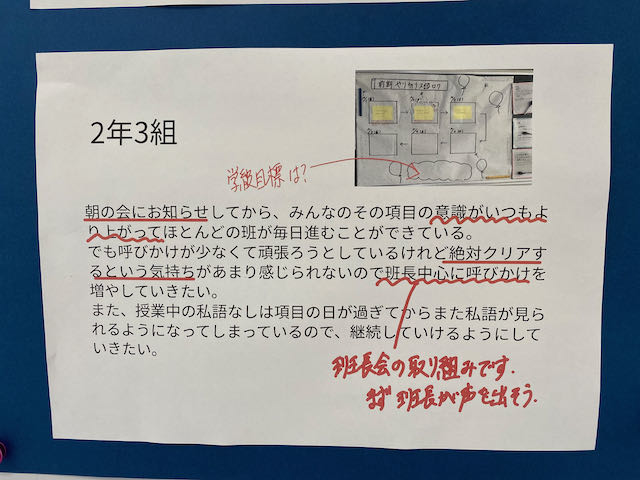 2年3組
学級目標は?
朝の会にお知らせしてから、みんなのその項目の意識がいつもよ
り上がってほとんどの班が毎日進むことができている。
でも呼びかけが少なくて頑張ろうとしているけれど絶対クリアす
るという気持ちがあまり感じられないので班長中心に呼びかけを
増やしていきたい。
また、授業中の私語なしは項目の日が過ぎてからまた私語が見ら
れるようになってしまっているので、継続していけるようにして
いきたい。
班長会の取り組みです.
まず班長が声を出そう.